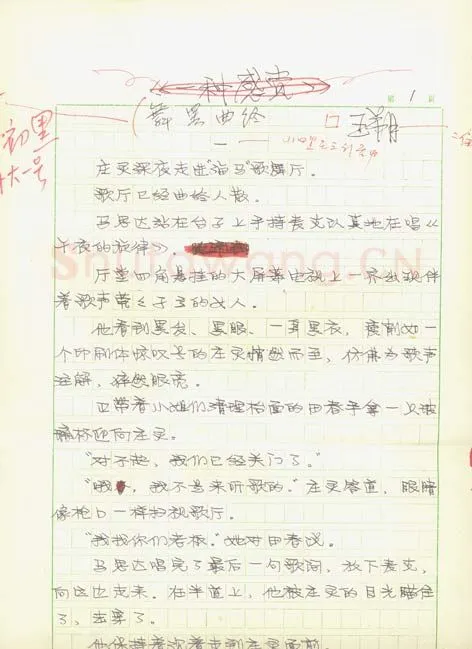 一种感觉
第 1 页
舞罢曲终
口 王朔
一
庄灵深夜走进“海马”歌舞厅。
歌厅已经曲终人散。
马思达站在台子上手持麦克认真地在唱《
午夜的旋律》
厅堂四角悬挂的大屏幕电视上一
着歌声
他看到黑发、黑眼、一身黑衣，瘦削如一
个印刷体惊叹号的庄灵悄然而至，仿佛为歌声
注解，
正带着小姐们清理台面的田春手拿一
迎向庄灵。
“对不起，我们已经关门了。”
“哦，我不是来听歌的。”庄灵答道，眼睛
像枪口一样扫视歌厅。
“我找你们老板。”她对田春说。
马思达唱完了最后一句歌词，放下麦克，
向这边走来。在半道上，他被庄灵的目光瞄住
了，
他保持着 走到庄灵面前